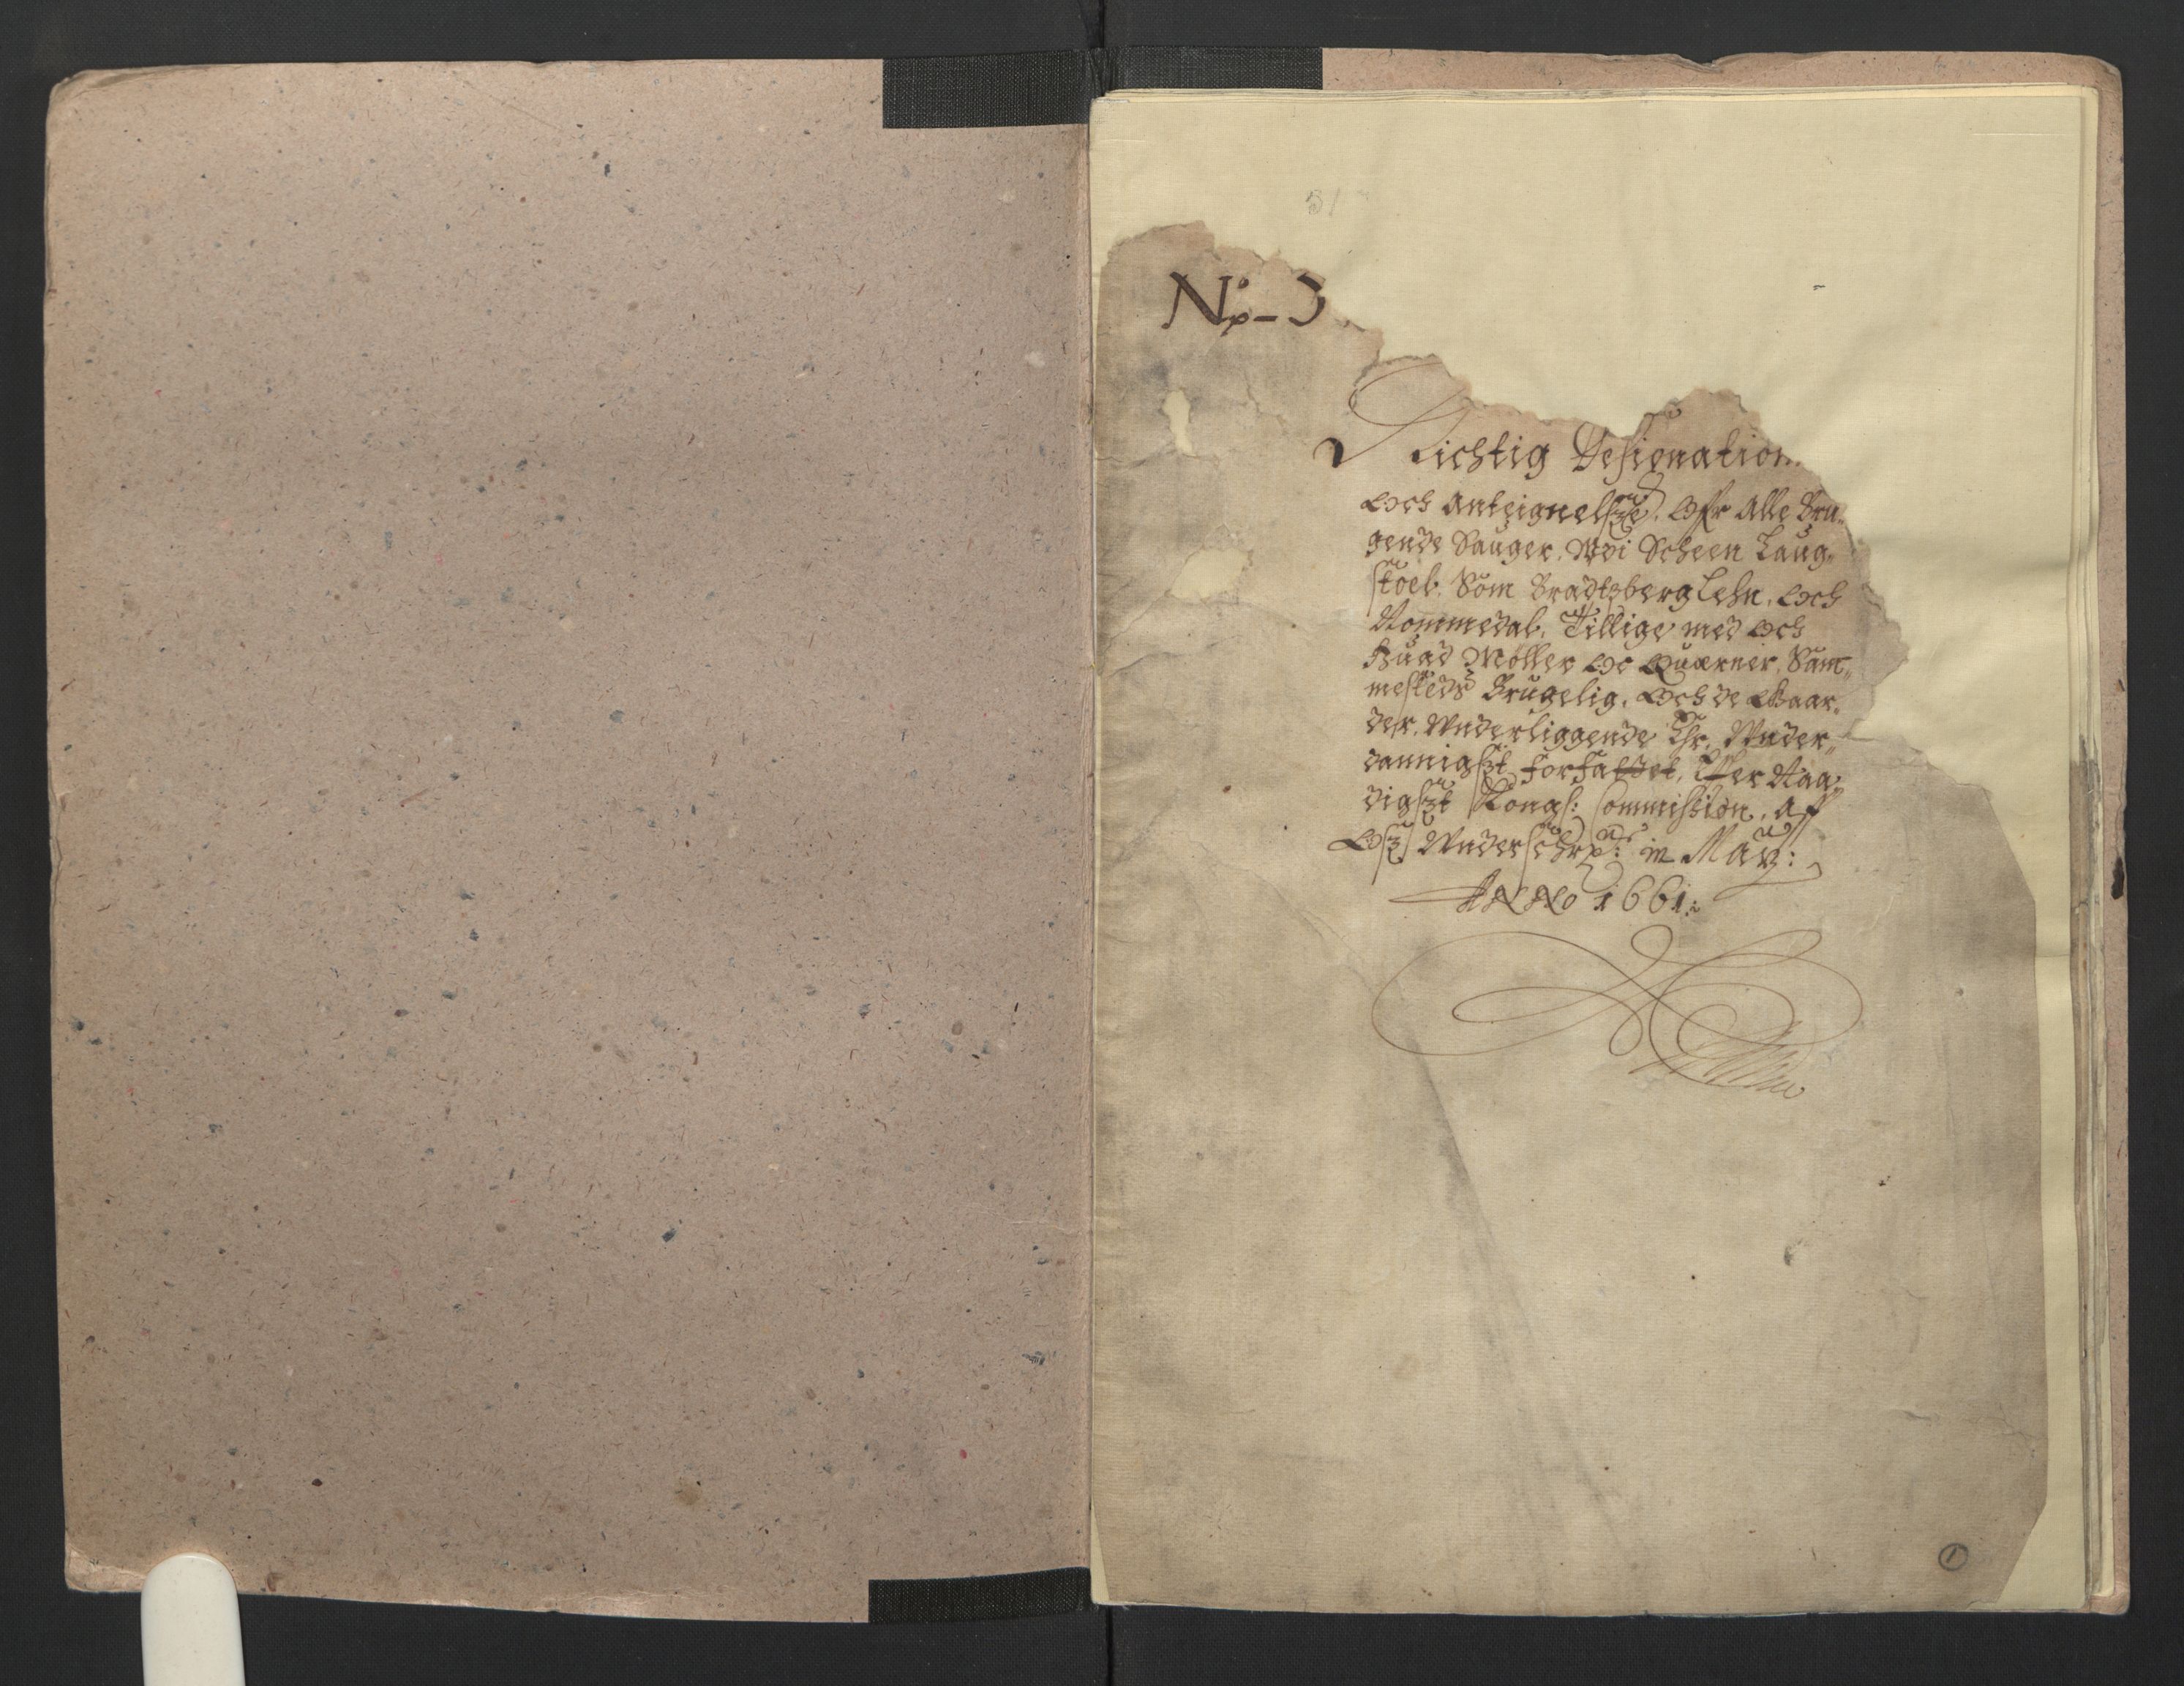 51
No 3
Richtig Designation
Och Anteignelsze, Ofr Alle Bru„
gende Sauger, Wdi Scheen Laug„
stoel, Som Bradtzberg Lehn, Och
Nommedal, Tillige med Och
huad Møller Oc Quærner, Sam„
mesteds Brugelig, Och de Gaar„
der, Wnderliggende Ehr, Wnder„
dannigszt forfattet, Efter Naa„
digszt Kongl: Commission, Aff
Osz Wnderschr: in Maÿ:
ANNO 1661:
1